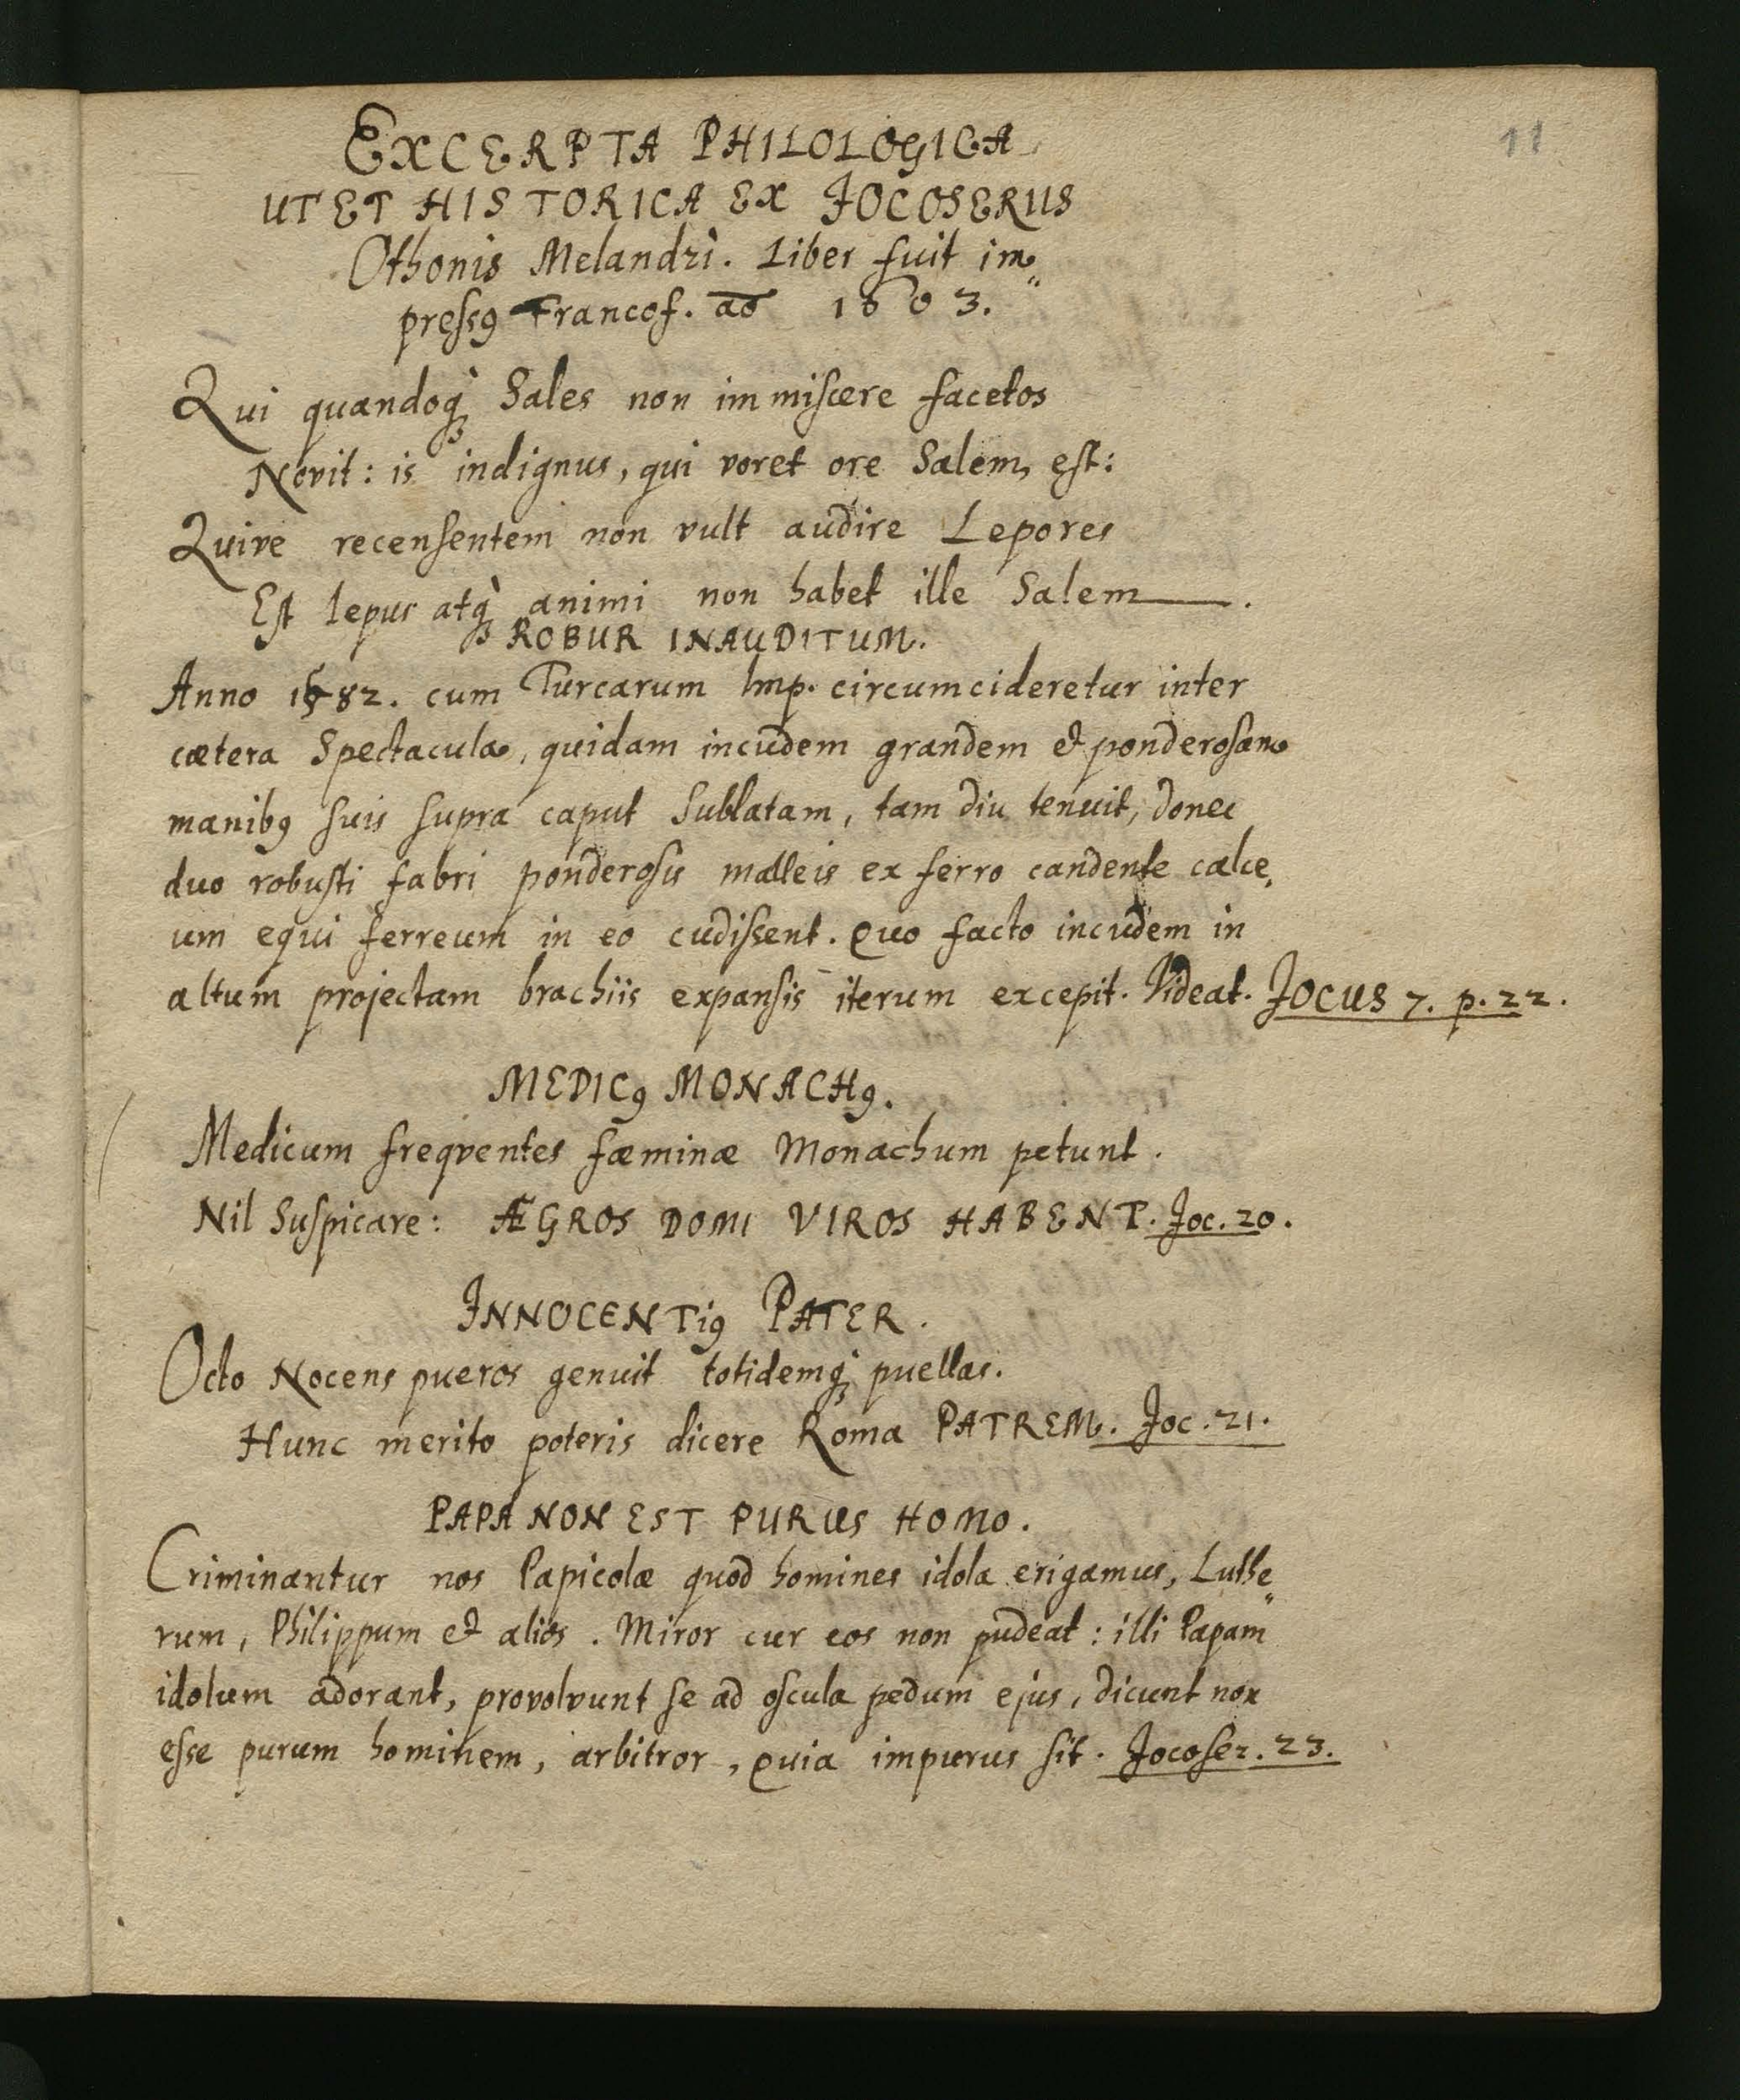 11
EXCERPTA PHILOLOGICA
UT ET HISTORICA EX JOCOSERIIS
Othonis Melandri. Liber fuit im„
preſsꝯ Francof. aō 1603.
Qui quandoq́ꝫ Sales non immiſcere facetos
Novit: is indignus, qui voret ore Salem, eſt:
Quive recenſentem non vult audire Lepores
Eſt lepus atq́ꝫ animi non habet ille Salem.
ROBUR INAUDITUM.
Anno 1582. cum Turcarum Imp. circumcideretur inter
cætera Spectacula, quidam incudem grandem & ponderoſam
manibꝯ ſuis ſupra caput Sublatam, tam diu tenuit, donec
duo robuſti fabri ponderoſis malleis ex ferro candente calce,
um equi ferreum in eo cudiſsent. Quo facto incudem in
altum projectam brachiis expanſis iterum excepit. Videat. JOCUS 7. p. 22.
MEDICꝯ MONACHꝯ.
Medicum freqventes fæminæ Monachum petunt.
Nil Suſpicare: ÆGROS DOMI VIROS HABENT. Joc. 20.
INNOCENTiꝯ PATER.
Octo Nocens pueros genuit totidemq́ꝫ puellas.
Hunc merito poteris dicere Roma PATREM. Joc. 21.
PAPA NON EST PURUS HOMO.
Criminantur nos Papicolæ quod homines idola erigamus, Luthe„
rum, Philippum & alios. Miror cur eos non pudeat: illi Papam
idolum adorant, provolvunt ſe ad oſcula pedum ejus, dicunt non
eſse purum hominem, arbitror, quia impurus ſit. Jocoſer. 23.